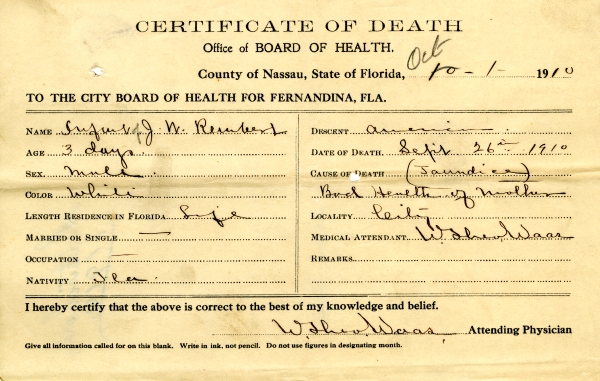 CERTIFICATE OF DEATH
Office of BOARD OF HEALTH.
Oct
County of Nassau, State of Florida, 10-1- 1910
TO THE CITY BOARD OF HEALTH FOR FERNANDINA, FLA.
NAME Infant of J. W. Rembert
AGE 3 days.
SEX. Male
COLOR White
LENGTH RESIDENCE IN FLORIDA Life
MARRIED OR SINGLE —
OCCUPATION —
NATIVITY Fla.
DESCENT American.
DATE OF DEATH. Sept. 26th 1910
CAUSE OF DEATH (Jaundice)
Bad Health of Mother
LOCALITY City
MEDICAL ATTENDANT W. Theo Waas
REMARKS
I hereby certify that the above is correct to the best of my knowledge and belief.
W. Theo. Waas Attending Physician
Give all information called for on this blank. Write in ink, not pencil. Do not use figures in designating month.